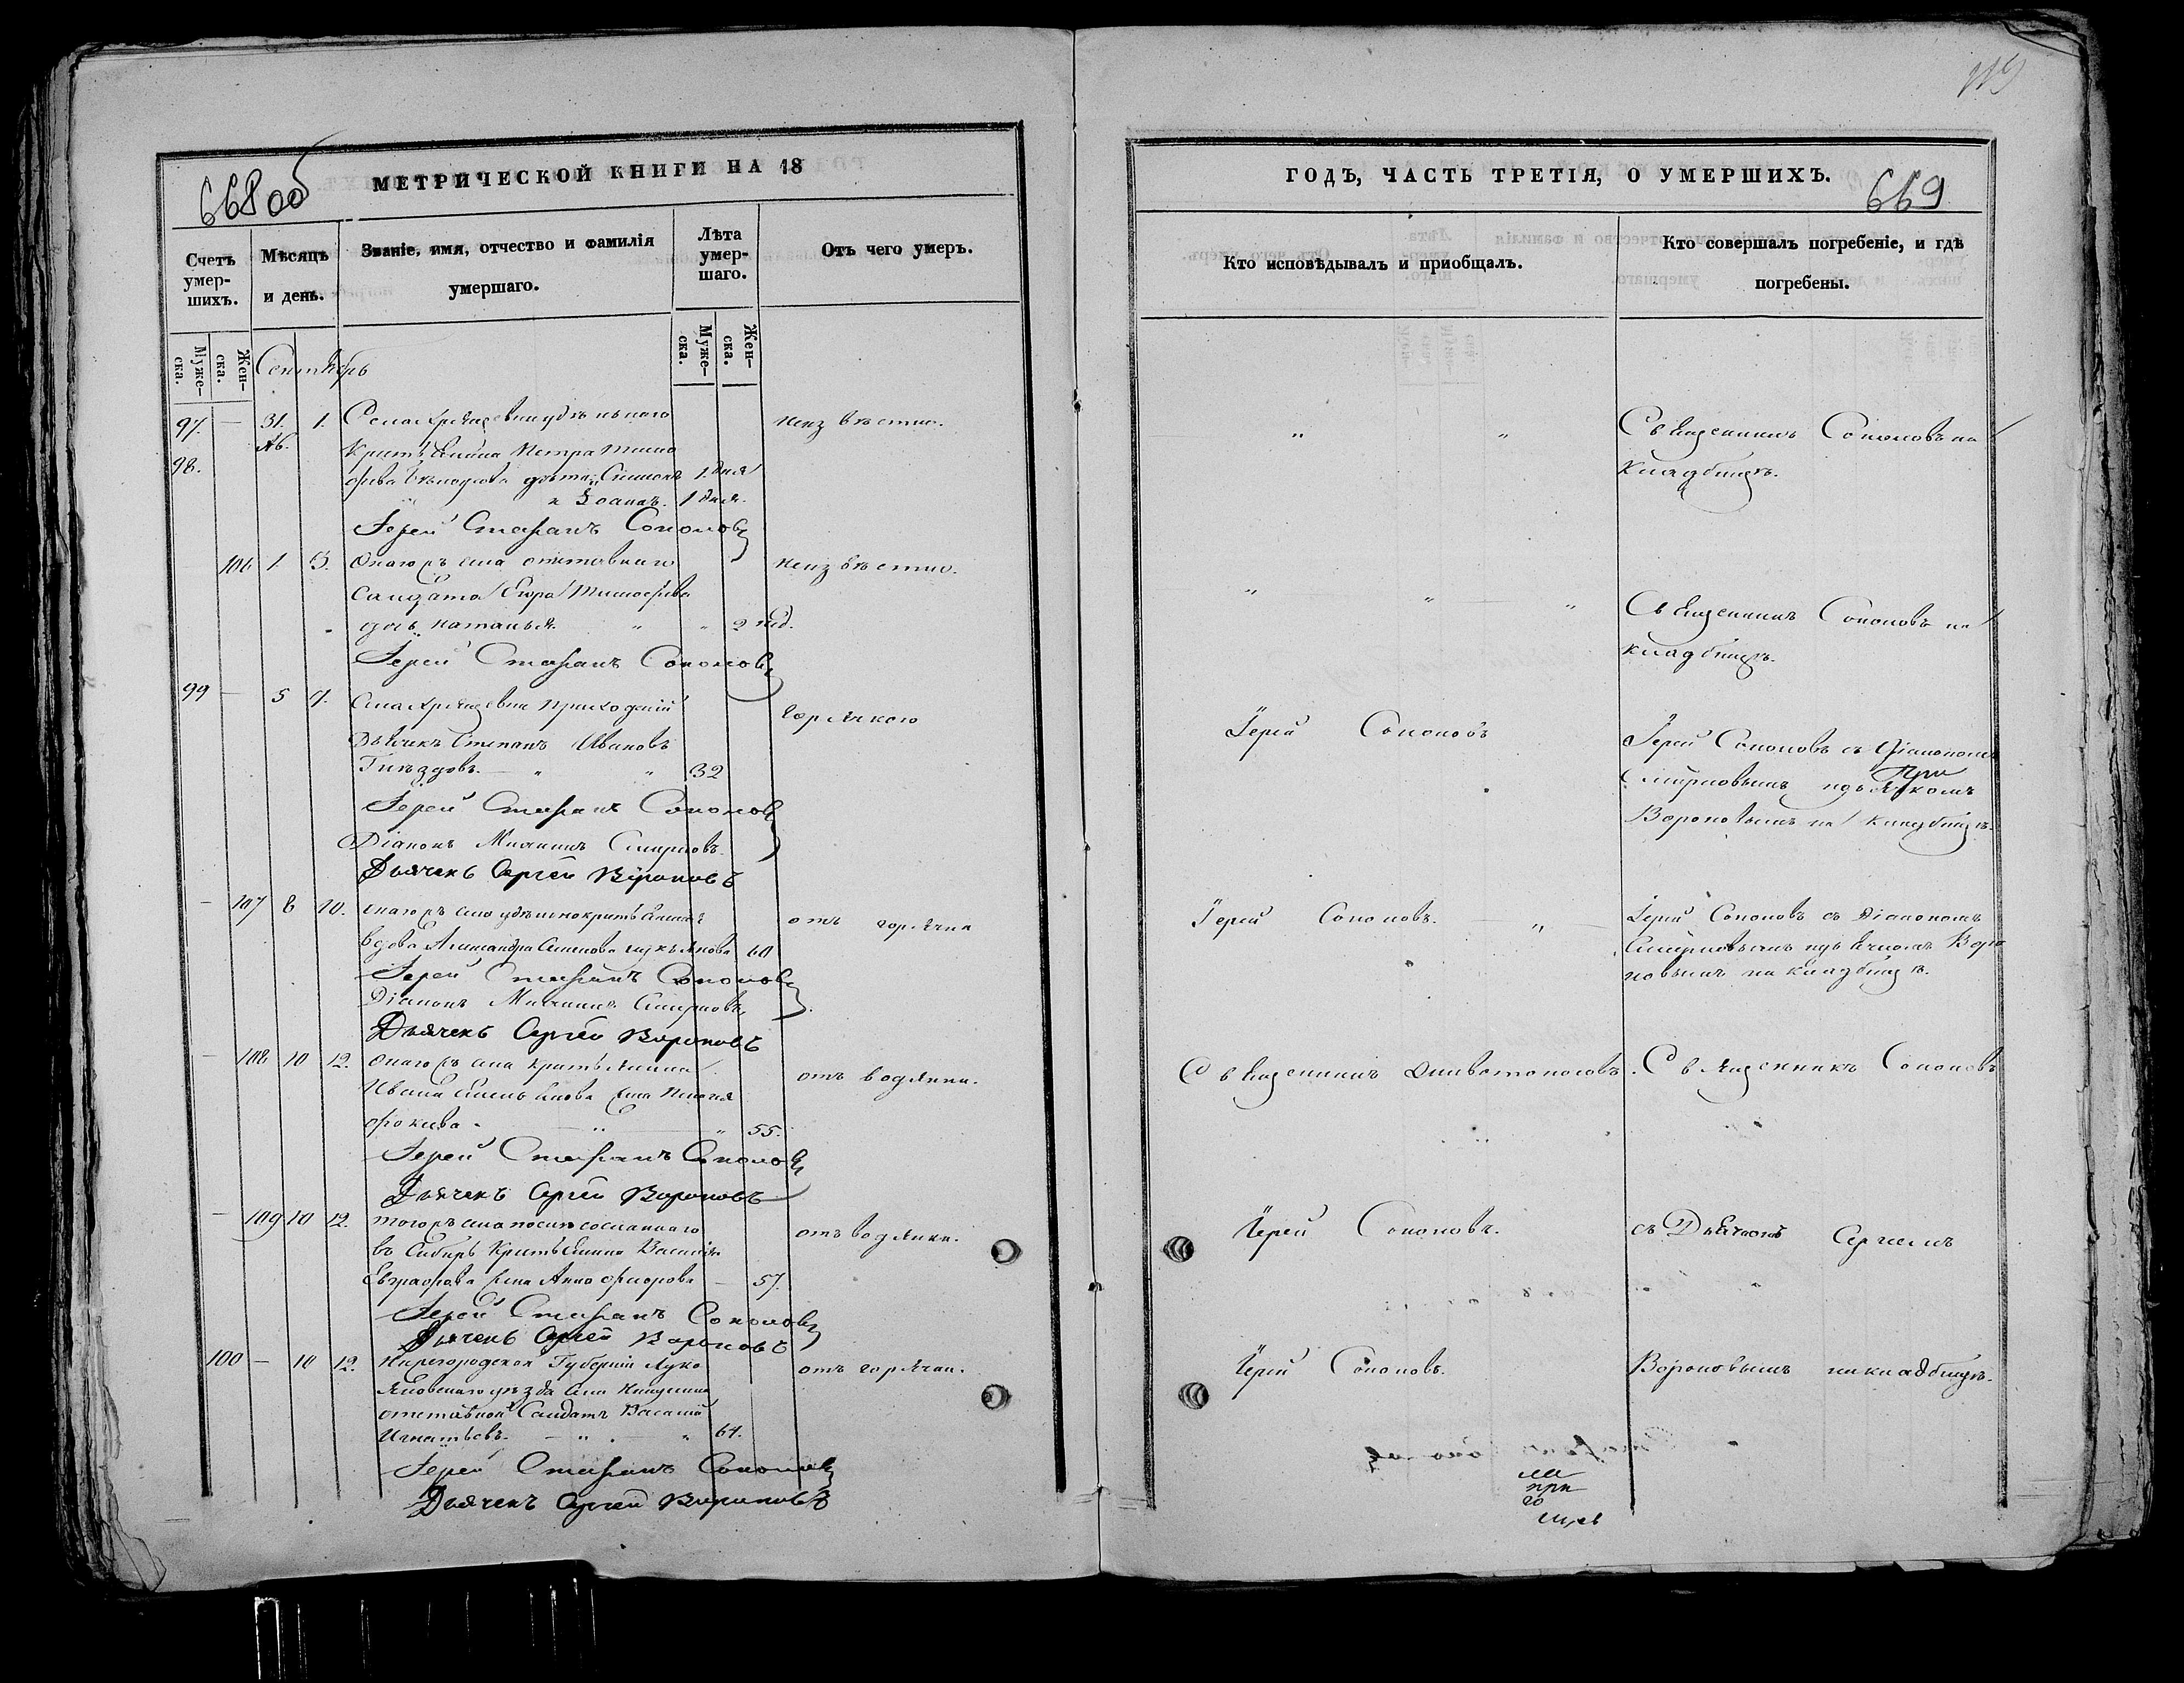 119
668 об
МЕТРИЧЕСКОЙ КНИГИ НА 18
Счетъ умер-шихъ.
Мѣсяцъ и день.
Званіе, имя, отчество и фамилія умершаго.
Лѣта умер-шаго.
Отъ чего умеръ.
Муже-ска.
Жен-ска.
Муже-ска.
Жен-ска.
Сентябрь
97. — 31. 1. Села удѣльнаго неизвѣстно.
98. Ав. Крестьянина Петра Тимо
фѣева дѣти Симеонъ 1. дня
и Іоаннъ. 1 дня.
Іерей Стефанъ Соколовъ
106 1 3. Онагожъ села отставнаго неизвѣстно.
Салдата Егора Тимофѣева
дочь Наталья. " " 2 нед.
Іерей Стефанъ Соколовъ
99 — 5 7. Села приходскій горячкою
Дьячекъ Степанъ Ивановъ
Гнѣздовъ. — " " 32
Іерей Стефанъ Соколовъ
Діаконъ Михаилъ Смирновъ.
Дьячекъ Сергей Вороновъ
— 107 8 10. онагожъ села удѣльнокрестьянина отъ горячки
вдова Александра Семенова 60
Іерей Стефанъ Соколовъ
Діаконъ Михаилъ Смирновъ
Дьячекъ Сергей Вороновъ
— 108 10 12. Онагожъ села Крестьянина отъ водянки.
Ивана жена Пелагея
55.
Іерей Стефанъ Соколовъ
Дьячекъ Сергей Вороновъ
— 109 10 12. тогожъ села сосланнаго отъ водянки.
въ Сибирь Крестьянина Василія
Евграфова жена Анна Федорова — 57.
Іерей Стефанъ Соколовъ
Дьячекъ Сергей Вороновъ
100 — 10 12. Нижегородской Губерніи Луко отъ горячки.
яновскаго уѣзда села
отставной Салдатъ Василій
Игнатьевъ. — " — " 64.
Іерей Стефанъ Соколовъ
Дьячекъ Сергей Вороновъ
ГОДЪ, ЧАСТЬ ТРЕТІЯ, О УМЕРШИХЪ.
669
Кто исповѣдывалъ и приобщалъ.
Кто совершалъ погребеніе, и гдѣ погребены.
" " Священникъ Соколовъ на
кладбищѣ.
" " " Священникъ Соколовъ на
кладбищѣ.
Іерей Соколовъ Іерей Соколовъ съ Діакономъ
Смирновымъ при
Вороновымъ на кладбищѣ.
Іерей Соколовъ. " Іерей Соколовъ съ Діакономъ
Смирновымъ Воро
новымъ на кладбищѣ.
Священникъ Священникъ Соколовъ
Іерей Соколовъ. съ Дьячкомъ Сергеемъ
Іерей Соколовъ. Вороновымъ на кладбищѣ.